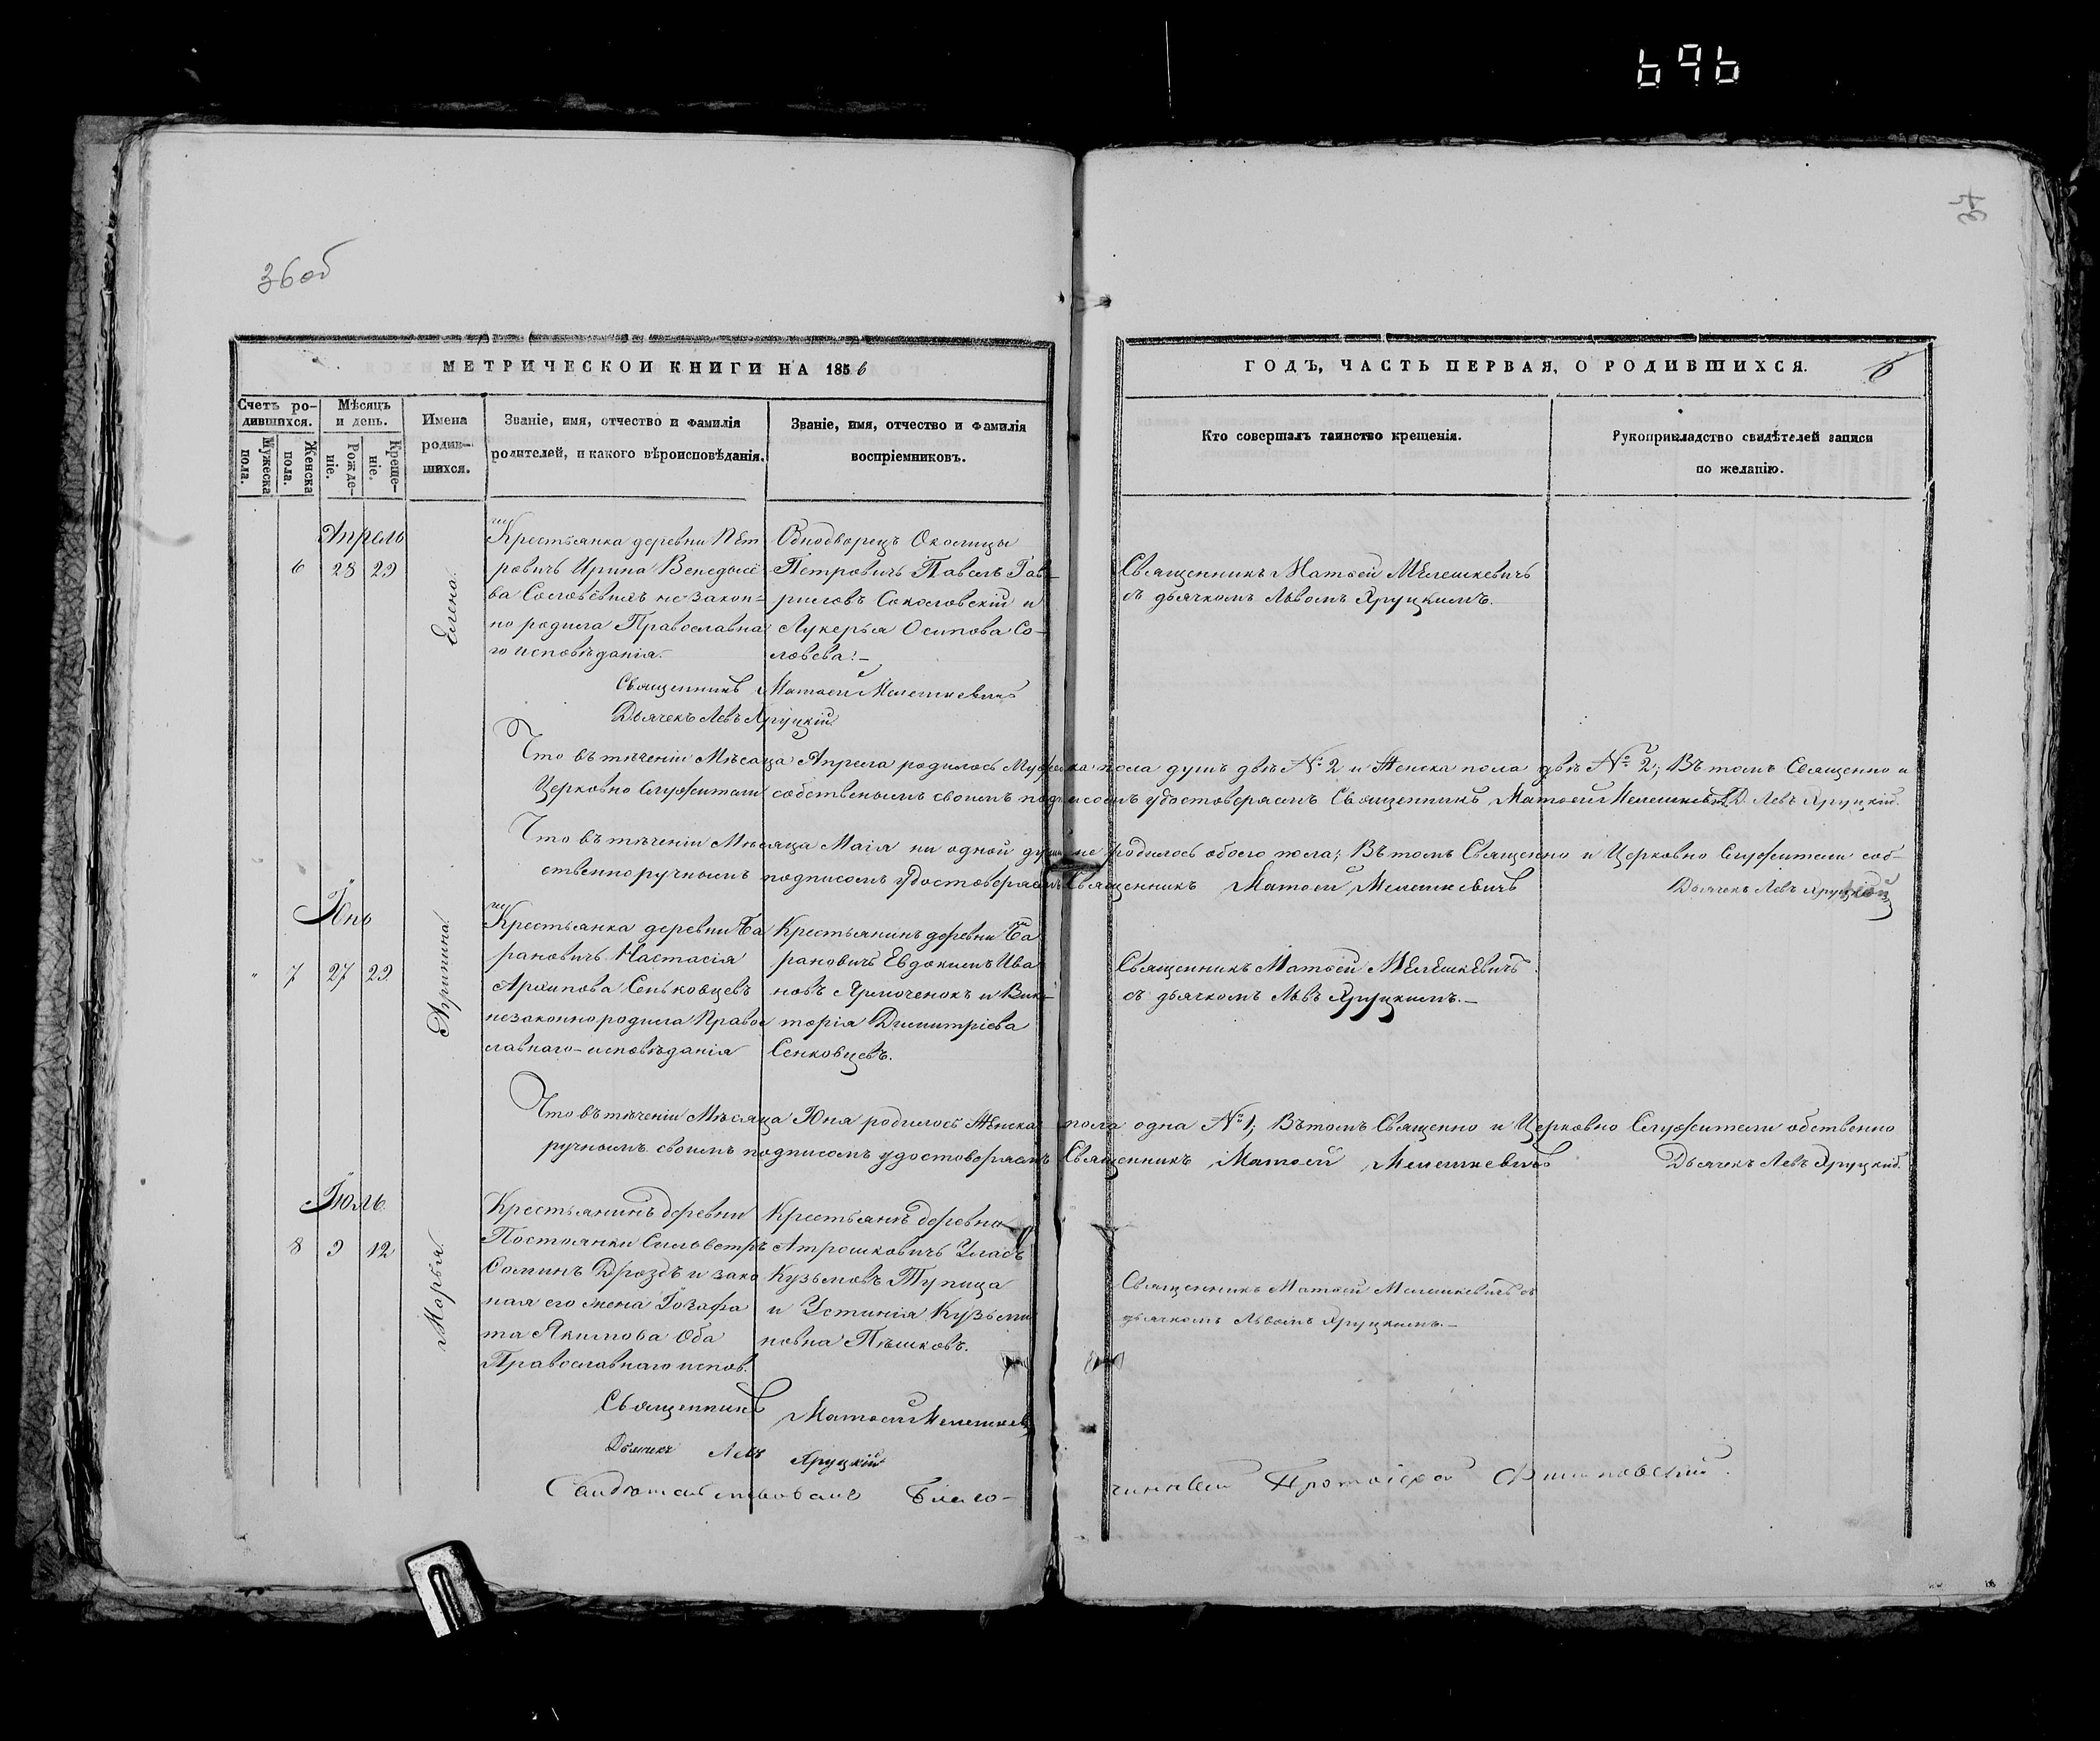 696
37
36об
МЕТРИЧЕСКОЙ КНИГИ НА 1856
ГОДЪ, ЧАСТЬ ПЕРВАЯ, О РОДИВШИХСЯ.
6
Счетъ ро-
дившихся.
Мѣсяцъ
и день.
Мужеска
пола.
Женска
пола.
Рожде-
ніе.
Креще-
ніе.
Имена
родив-
шихся.
Званіе, имя, отчество и фамилія
родителей, и какого вѣроисповѣданія.
Званіе, имя, отчество и фамилія
воспріемниковъ.
Кто совершалъ таинство крещенія.
Рукоприкладство свидѣтелей записи
по желанію.
Апрель
6 28 29
Елена.
Крестьянка деревни Пет
ровичъ Ирина Венедысё
ва Соловёвихъ не закон-
но родила Православна
го исповѣданія.
Однодворецъ Околицы
Петровичъ Павелъ Гав-
риловъ Соколовскій и
Лукерья Осипова Со-
ловьева.
Священникъ Матѳей Мелешкевичъ
съ дьячкомъ Львомъ Яруцкимъ.
Священникъ Матѳей Мелешкевичъ
Дьячекъ Левъ Яруцкій.
Что въ тѣченіи Мѣсяца Апреля родилось Мужеска пола душъ двѣ № 2 и Женска пола двѣ № 2; Въ томъ Священно и
Церковно Служители собственнымъ своимъ подписомъ удостоверяемъ Священникъ Матѳей Мелешкевичъ Д. Левъ Яруцкій.
Что въ тѣченіи Мѣсяца Маія ни одной души не родилось обоего пола; Въ томъ Священно и Церковно Служители соб-
ственноручнымъ подписомъ удостоверяемъ Священникъ Матѳей Мелешкевичъ Дьячекъ Левъ Яруцкій
Юнь
" 7 27 29
Агрипина.
Крестьянка деревни Ба
рановичъ Настасія
Архипова Сеньковцевъ
незаконно родила Правос
лавнаго исповѣданія
Крестьянинъ деревни Ба
рановичъ Евдокимъ Ива
новъ Ярмоченокъ и Вик-
торія Димитріева
Сенковцевъ.
Священникъ Матѳей Мелешкевичъ
съ дьячкомъ Львъ Яруцкимъ.
Что въ тѣченіи Мѣсяца Юня родилось Женска пола одна № 1; Въ томъ Священно и Церковно Служители обственно
ручнымъ своимъ подписомъ удостоверяемъ Священникъ Матѳей Мелешкевичъ Дьячекъ Левъ Яруцкій.
Іюль
8 9 12
Марья.
Крестьянинъ деревни
Постоянки Сильвестръ
Соминъ Дроздъ и зако
ная его жена Іозафа
та Якимова Оба
Православнаго испов.
Крестьянъ деревни
Атрошковичъ Уласъ
Кузьмовъ Тупица
и Устинія Кузьми
новна Пѣшковъ.
Священникъ Матѳей Мелешкевичъ съ
дьячкомъ Львомъ Яруцкимъ.
Священникъ Матѳей Мелешкевичъ
Дьячекъ Левъ Яруцкій
Свидѣтельствовалъ Благо-
чинный Протоіерей